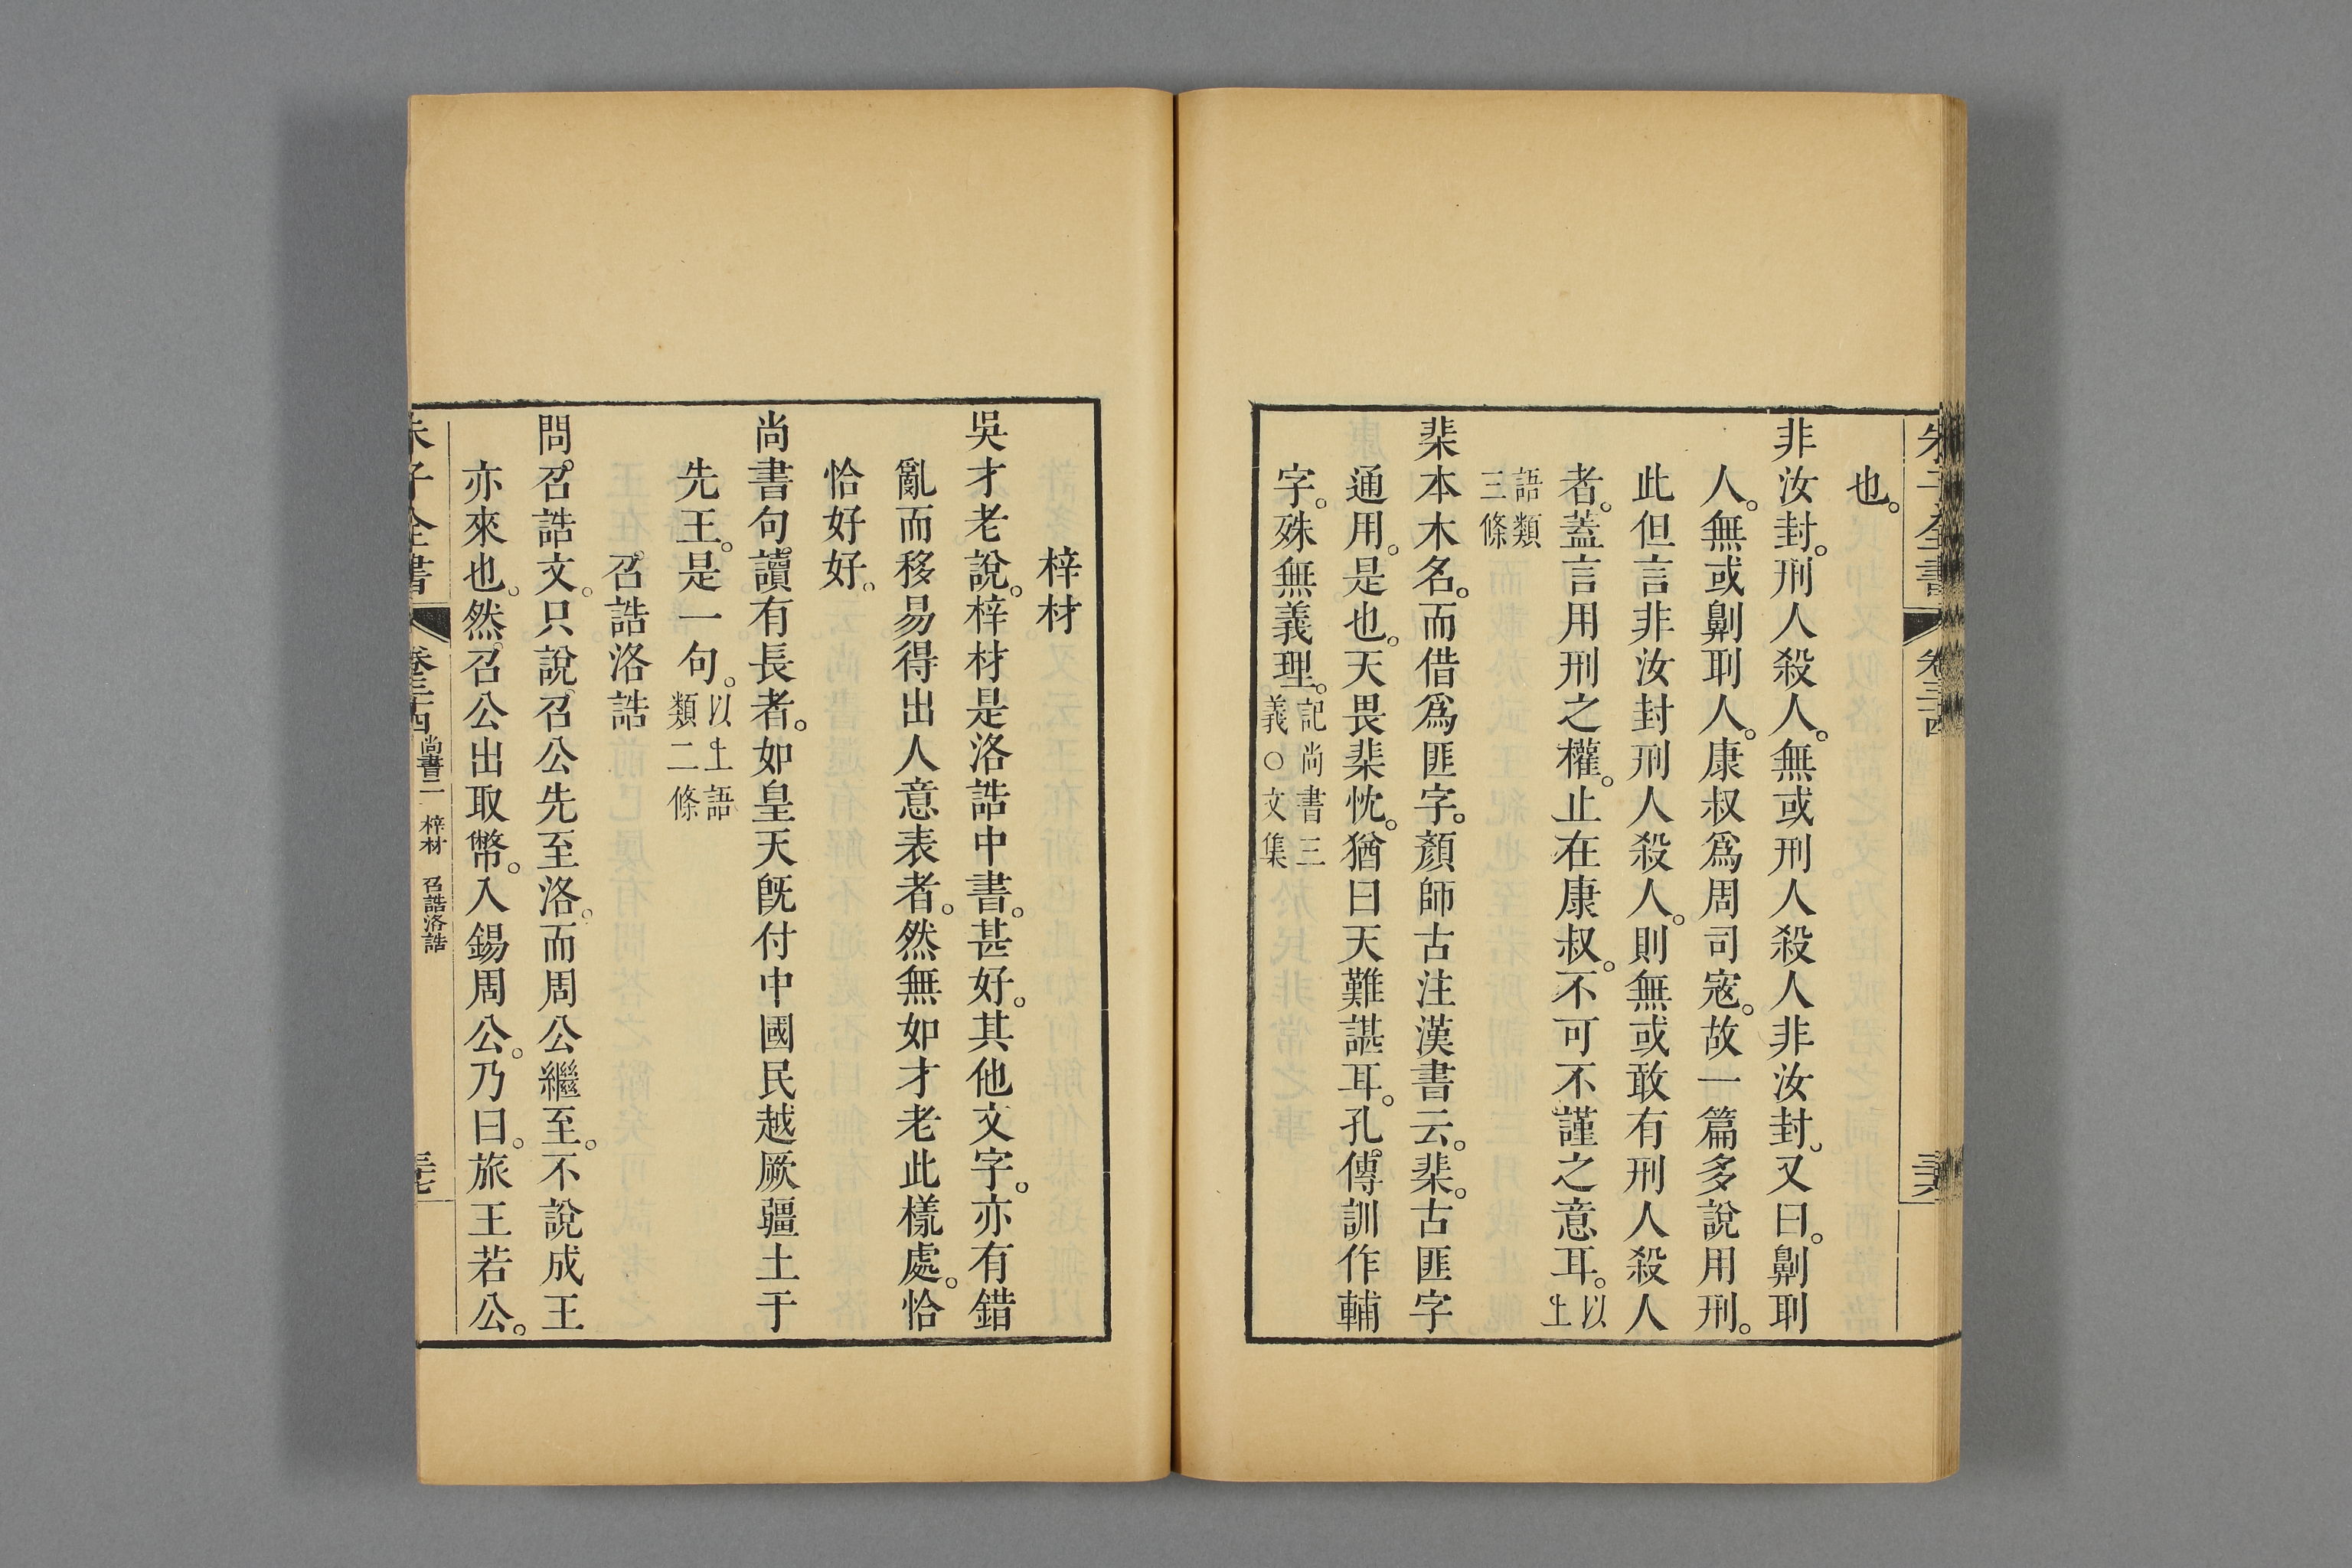 朱子全書 卷三十四 三六
也。
非汝封。刑人殺人。無或刑人殺人非汝封。又曰。劓刵
人。無或劓刵人。康叔爲周司寇。故一篇多說用刑。
此但言非汝封刑人殺人。則無或敢有刑人殺人
者。蓋言用刑之權。止在康叔。不可不謹之意耳。以上
語類三條
棐本木名。而借爲匪字。顏師古注漢書云。棐。古匪字
通用。是也。天畏棐忱。猶曰天難諶耳。孔傳訓作輔
字。殊無義理。記尚書三義○文集
梓材
吳才老說。梓材是洛誥中書。甚好。其他文字。亦有錯
亂而移易得出人意表者。然無如才老此樣處。恰
恰好好。
尚書句讀有長者。如皇天旣付中國民越厥疆土于
先王。是一句。以上語類二條
召誥洛誥
問。召誥文。只說召公先至洛。而周公繼至。不說成王
亦來也。然召公出取幣。入錫周公。乃曰。旅王若公。
朱子全書 卷三十四 尚書二 梓材 召誥洛誥 三七